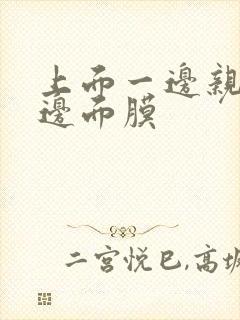 上而一邊親
邊而膜
二宮悦巳,高坂